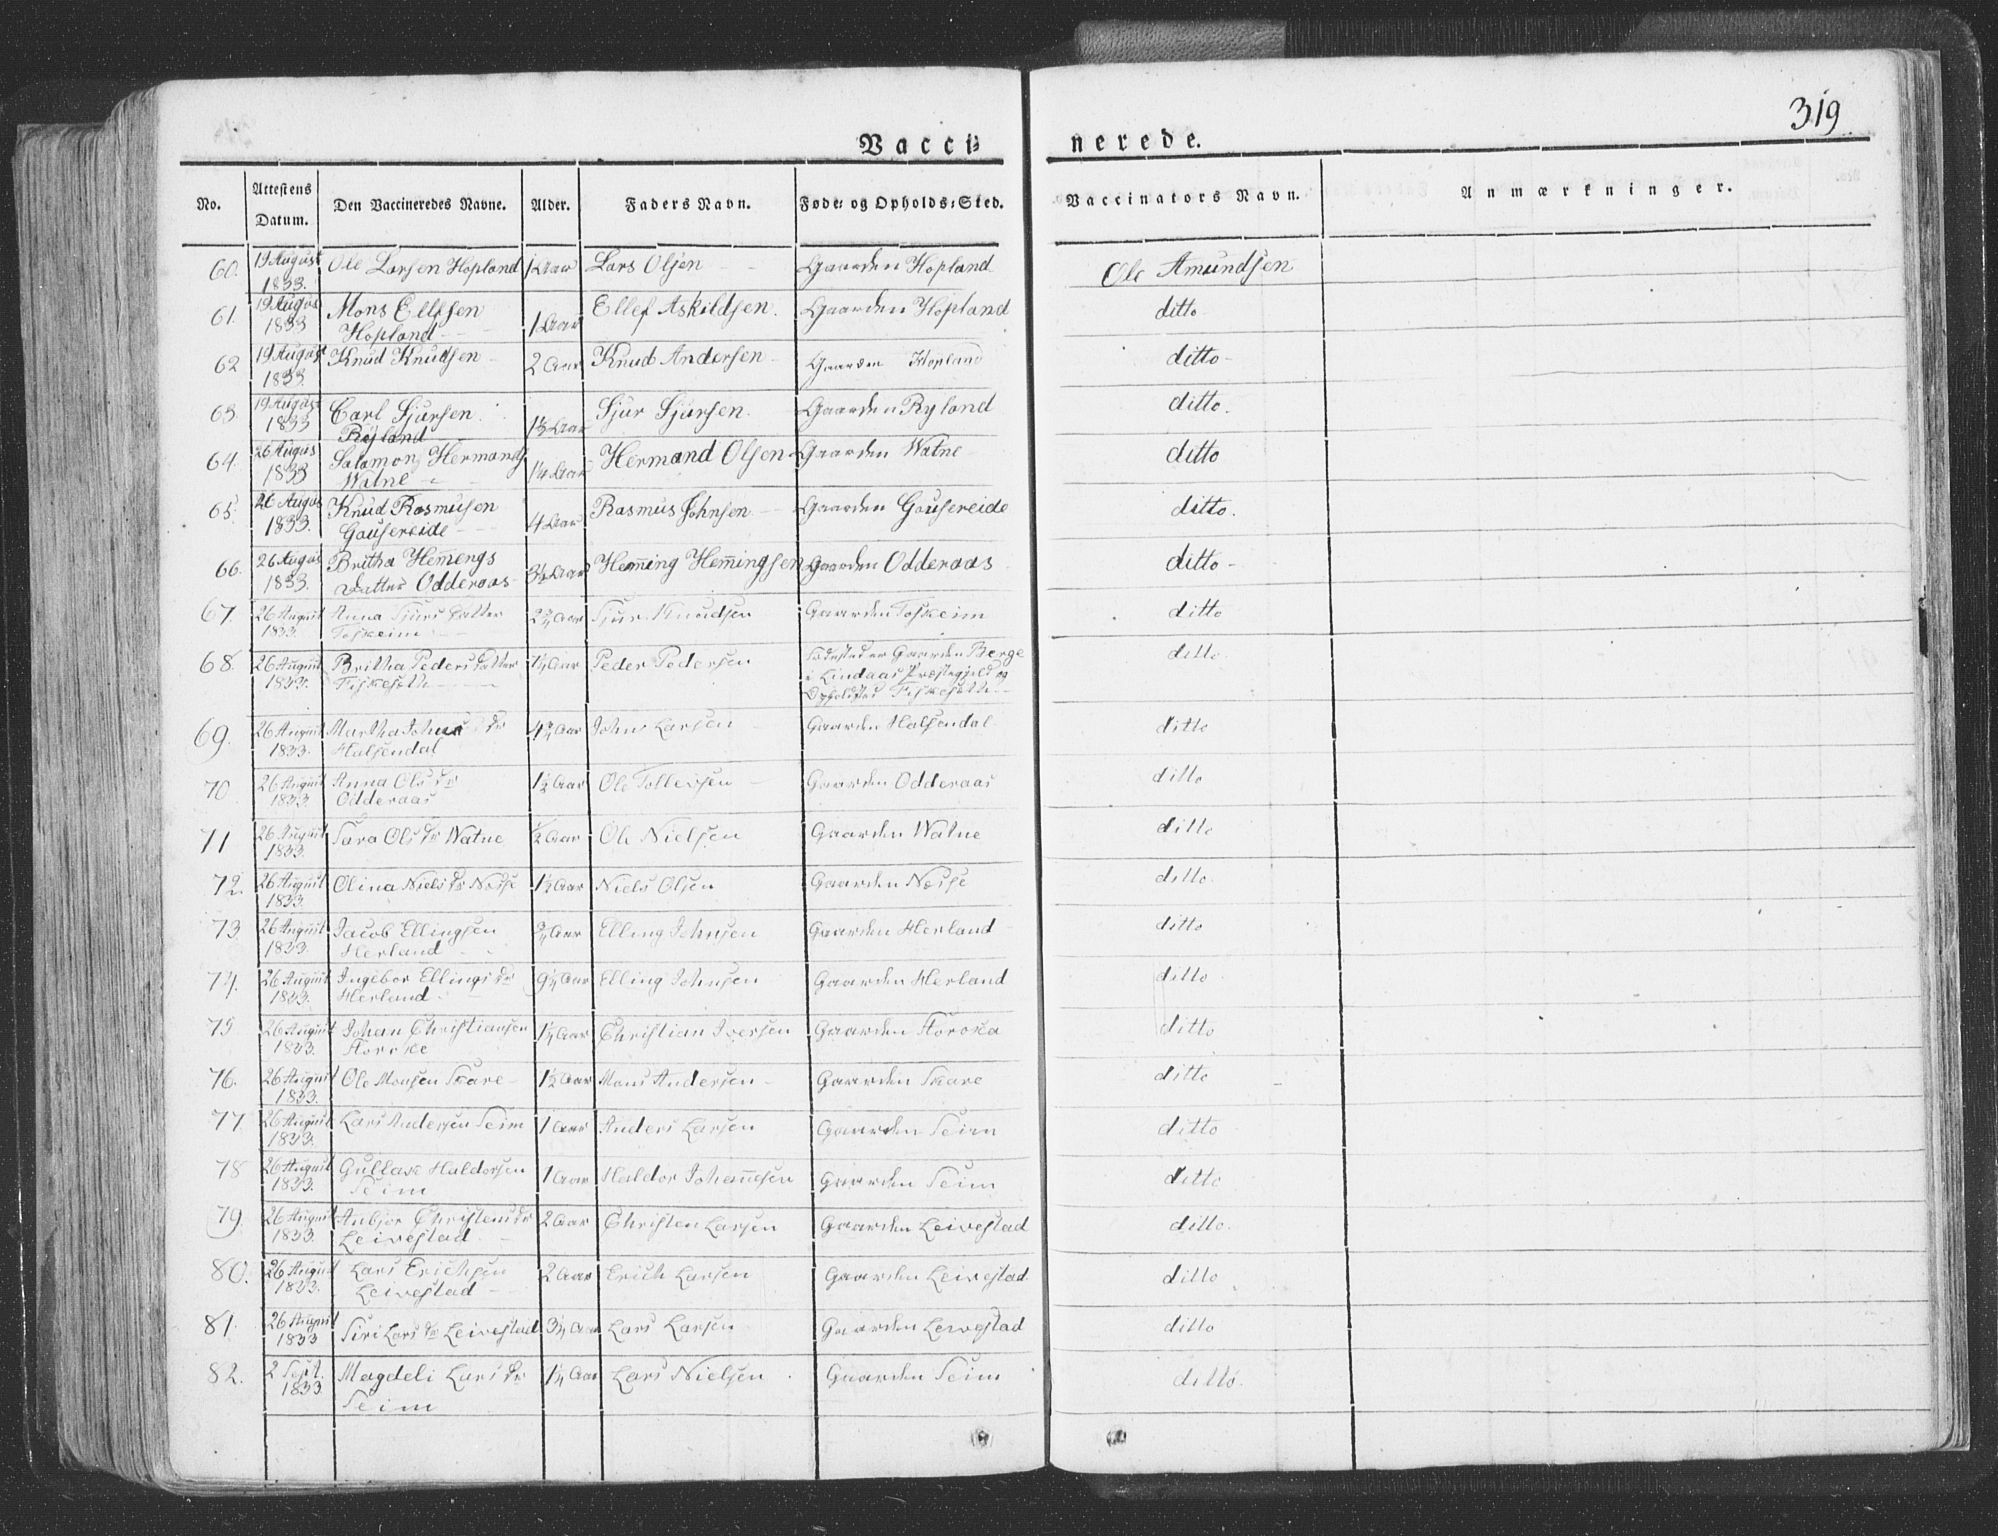 319
Vacci= nerede.
No. Attestens Datum. Den Vaccineredes Navne. Alder. Faders Navn. Føde= og Opholds=Sted. Vaccinators Navn. Anmærkninger.
60. 19 August 1833. Ole Larsen Hopland 1 Aar Lars Olsen Gaarden Hopland Ole Amundsen
61. 19 August 1833 Mons Ellefsen Hopland 1 Aar Ellef Askildsen. Gaarden Hopland ditto
62 19 August 1833. Knud Knudsen 2 Aar Knud Andersen Gaarden Hopland ditto
63. 19 August 1833 Carl Sjursen Ryland 1½ Aar Sjur Sjursen. Gaarden Ryland ditto.
64. 26 August 1833 Salamon Hermands Watne 1¼ Aar Hermand Olsen Gaarden Watne ditto
65. 26 August 1833. Knud Rasmusen Gousereide 4 Aar Rasmus Johnsen Gaarden Gousereide ditto.
66. 26 August 1833. Britha Hemengs Datter Odderaas 3½ Aar Hem̅ing Hem̅ingsen Gaarden Odderaas ditto
67. 26 August 1833. Anna Sjurs Datter Toskeim 2¾ Aar Sjur Knudsen Gaarden Toskeim ditto
68. 26 August 1833. Britha Peders Datter Fiskeseth Aar Peder Pedersen Fødested er Gaarden Berge i Lindaas Præstegjeld og Opholdsted Fiskeseth ditto
69. 26 August 1833. Martha Johns Dr Halsendal 4¾ Aar John Larsen Gaarden Halsendal ditto
70 26 August 1833. Anna Ols Dr Odderaas 1½ Aar Ole Tollevsen Gaarden Odderaas ditto
71 26 August 1833. Sara Ols Dr Watne ½ Aar Ole Nielsen Gaarden Watne ditto
72. 26 August 1833. Olina Niels Dr Nesse 1½ Aar Niels Olsen Gaarden Nesse ditto.
73 26 August 1833. Jacob Ellingsen Herland ¾ Aar Elling Johnsen Gaarden Herland ditto
74. 26 August 1833. Ingebor Ellings Dr Herland 9¼ Aar Elling Johnsen Gaarden Herland ditto
75. 26 August 1833. Johan Christiansen 1¼ Aar Christian Iversen Gaarden ditto
76. 26 August 1833. Ole Monsen Skare 1½ Aar Mons Andersen Gaarden Skare ditto
77. 26 August 1833. Lars Andersen Seim 1 Aar Anders Larsen Gaarden Seim ditto
78 26 August 1833. Gullak Haldorsen Seim 1 Aar Haldor Johan̅esen Gaarden Seim ditto
79. 26 August 1833. Anbjor Christens Dr Leivestad 2 Aar Christen Larsen Gaarden Leivestad ditto.
80. 26 August 1833. Lars Erichsen Leivestad 2 Aar Erich Larsen Gaarden Leivestad ditto
81. 26 August 1833 Siri Lars Dr Leivestad 3¼ Aar Lars Larsen Gaarden Leivestad ditto
82. 2 Sept. 1833 Magdeli Lars Dr Seim 1¼ Aar Lars Nielsen Gaarden Seim ditto.